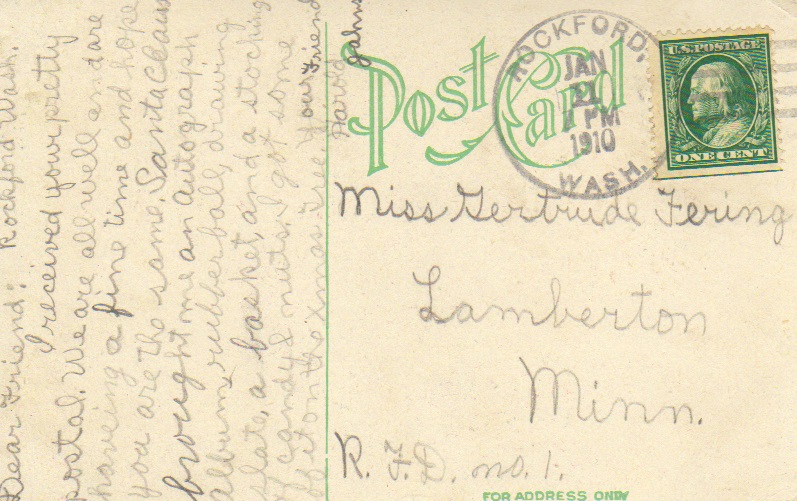 Rockford Wash.
Dear Friend:
I received your pretty
postal. We are all well and are
haveing a fine time and hope
you are the same. Santa Claus
brought me an Autograph
album, rubber ball, drawing
slate, a basket, and a stocking
of candy & nuts. I got some
of it on the Xmas tree. Your Friend
Harold Jahns
Post Card
ROCKFORD,
JAN
PM
1910
WASH.
U.S. POSTAGE
ONE CENT
Miss Gertrude Fering
Lamberton
Minn.
R. F. D. no. 1.
FOR ADDRESS ONLY